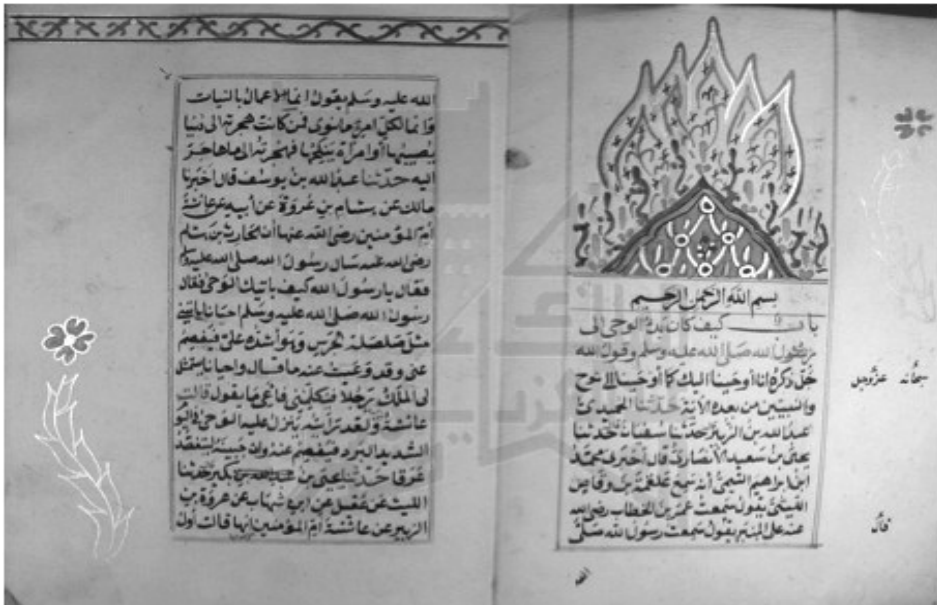 بسم الله الرحمن الرحيم
باب كيف كان بدء الوحي الى
رسول الله صلى الله عليه وسلم وقول الله
جل ذكره انا أوحينا اليك كما أوحينا الى نوح
والنبيين من بعده الآية حدثنا الحميدي
عبد الله بن الزبير حدثنا سفيان حدثنا
يحيى بن سعيد الأنصاري قال أخبرني محمد
ابن ابراهيم التيمي أنه سمع علقمة بن وقاص
الليثي يقول سمعت عمر بن الخطاب رضي الله
عنه على المنبر يقول سمعت رسول الله صلى
سبحانه عز وجل
قال
الله
الله عليه وسلم يقول انما الأعمال بالنيات
وانما لكل امرئ ما نوى فمن كانت هجرته الى دنيا
يصيبها أو امرأة ينكحها فهجرته الى ما هاجر
اليه حدثنا عبد الله بن يوسف قال أخبرنا
مالك عن هشام بن عروة عن أبيه عن عائشة
أم المؤمنين رضي الله عنها أن الحارث بن هشام
رضي الله عنه سأل رسول الله صلى الله عليه وسلم
فقال يا رسول الله كيف يأتيك الوحي فقال
رسول الله صلى الله عليه وسلم احيانا يأتيني
مثل صلصلة الجرس وهو أشده علي فيفصم
عني وقد وعيت عنه ما قال واحيانا يتمثل
لي الملك رجلا فيكلمني فأعي ما يقول قالت
عائشة ولقد رأيته ينزل عليه الوحي في اليوم
الشديد البرد فيفصم عنه وان جبينه ليتفصد
عرقا حدثنا يحيى بن بكير حدثنا
الليث عن عقيل عن ابن شهاب عن عروة بن
الزبير عن عائشة ام المؤمنين انها قالت أول